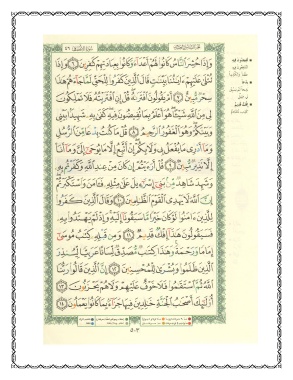 وَإِذَا حُشِرَ النَّاسُ كَانُوا لَهُمْ أَعْدَاءً وَكَانُوا بِعِبَادَتِهِمْ كَافِرِينَ ٦ وَإِذَا
تُتْلَى عَلَيْهِمْ ءَايَاتُنَا بَيِّنَاتٍ قَالَ الَّذِينَ كَفَرُوا لِلْحَقِّ لَمَّا جَاءَهُمْ هَذَا
سِحْرٌ مُّبِينٌ ٧ أَمْ يَقُولُونَ افْتَرَاهُ قُلْ إِنِ افْتَرَيْتُهُ فَلَا تَمْلِكُونَ
لِي مِنَ اللَّهِ شَيْئًا هُوَ أَعْلَمُ بِمَا تُفِيضُونَ فِيهِ كَفَى بِهِ شَهِيدًا بَيْنِي
وَبَيْنَكُمْ وَهُوَ الْغَفُورُ الرَّحِيمُ ٨ قُلْ مَا كُنتُ بِدْعًا مِّنَ الرُّسُلِ
وَمَا أَدْرِي مَا يُفْعَلُ بِي وَلَا بِكُمْ إِنْ أَتَّبِعُ إِلَّا مَا يُوحَى إِلَيَّ وَمَا أَنَا
إِلَّا نَذِيرٌ مُّبِينٌ ٩ قُلْ أَرَءَيْتُمْ إِن كَانَ مِنْ عِندِ اللَّهِ وَكَفَرْتُم بِهِ
وَشَهِدَ شَاهِدٌ مِّن بَنِي إِسْرَائِيلَ عَلَى مِثْلِهِ فَآمَنَ وَاسْتَكْبَرْتُمْ
إِنَّ اللَّهَ لَا يَهْدِي الْقَوْمَ الظَّالِمِينَ ١٠ وَقَالَ الَّذِينَ كَفَرُوا
لِلَّذِينَ ءَامَنُوا لَوْ كَانَ خَيْرًا مَّا سَبَقُونَا إِلَيْهِ وَإِذْ لَمْ يَهْتَدُوا بِهِ
فَسَيَقُولُونَ هَذَا إِفْكٌ قَدِيمٌ ١١ وَمِن قَبْلِهِ كِتَابُ مُوسَى
إِمَامًا وَرَحْمَةً وَهَذَا كِتَابٌ مُّصَدِّقٌ لِّسَانًا عَرَبِيًّا لِّيُنذِرَ
الَّذِينَ ظَلَمُوا وَبُشْرَى لِلْمُحْسِنِينَ ١٢ إِنَّ الَّذِينَ قَالُوا رَبُّنَا
اللَّهُ ثُمَّ اسْتَقَامُوا فَلَا خَوْفٌ عَلَيْهِمْ وَلَا هُمْ يَحْزَنُونَ ١٣
أُولَئِكَ أَصْحَابُ الْجَنَّةِ خَالِدِينَ فِيهَا جَزَاءً بِمَا كَانُوا يَعْمَلُونَ ١٤
٥٠٣